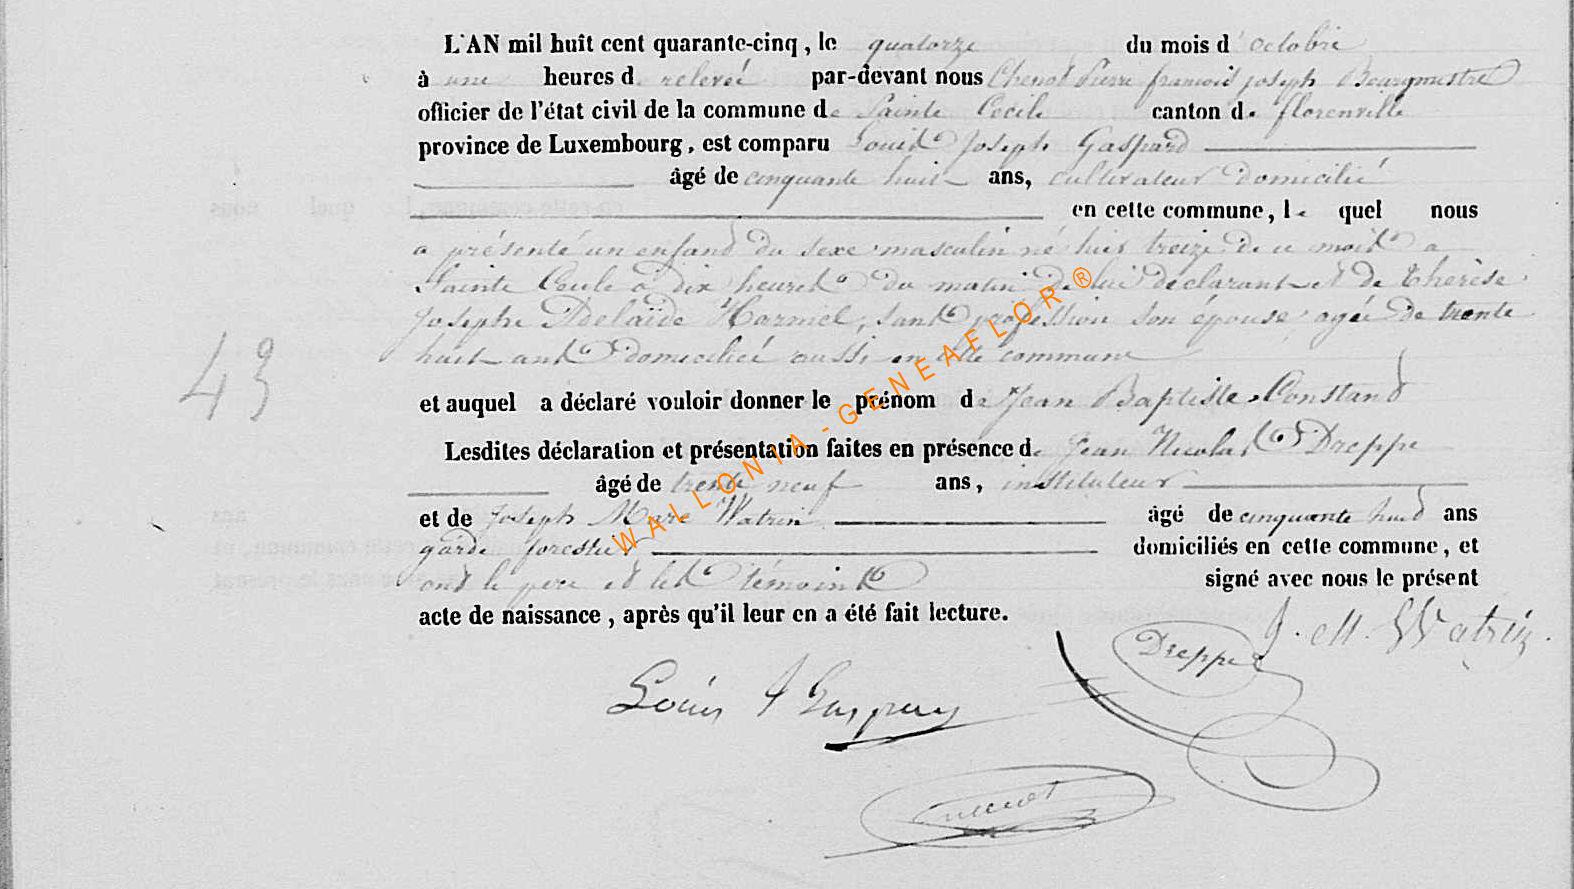 L'AN mil huit cent quarante-cinq, le quatorze du mois d'octobre
à une heures de relevée par-devant nous Chenot Pierre françois joseph Bourgmestre
officier de l'état civil de la commune de Sainte Cecile canton de florenville
province de Luxembourg, est comparu Louis Joseph Gaspard
âgé de cinquante huit ans, cultivateur domicilié
en cette commune, le quel nous
a présenté un enfand du sexe masculin né hier treize de ce mois a
Sainte Cecile a dix heures du matin de lui déclarant et de thérèse
Josephe Adelaïde Harmel, sans profession son épouse agée de trente
huit ans domiciliée aussi en cette commune
43
et auquel a déclaré vouloir donner le prénom de Jean Baptiste Constand
Lesdites déclaration et présentation faites en présence de Jean Nicolas Dreppe
âgé de trente neuf ans, instituteur
et de Joseph Marc Watrin âgé de cinquante huid ans
garde forestier domiciliés en cette commune, et
ond le pere et les témoins signé avec nous le présent
acte de naissance, après qu'il leur en a été fait lecture.
J. M. Watrin.
Dreppe
Louis J Gaspard
WALLONIA-GENEAFLOR ®